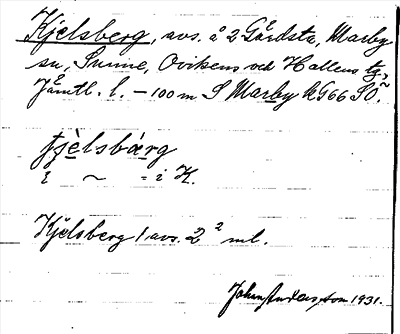 Kjelsberg, avs. å 2 Gårdsta, Marby
sn, Sunne, Ovikens och Hallens tg,
Jämtl. l. – 100 m S Marby k G66 SÖ.
fjèlsbærg
ɩ ~ = i K.
Kjelsberg 1 avs. 2² ml.
John Andersson 1931.